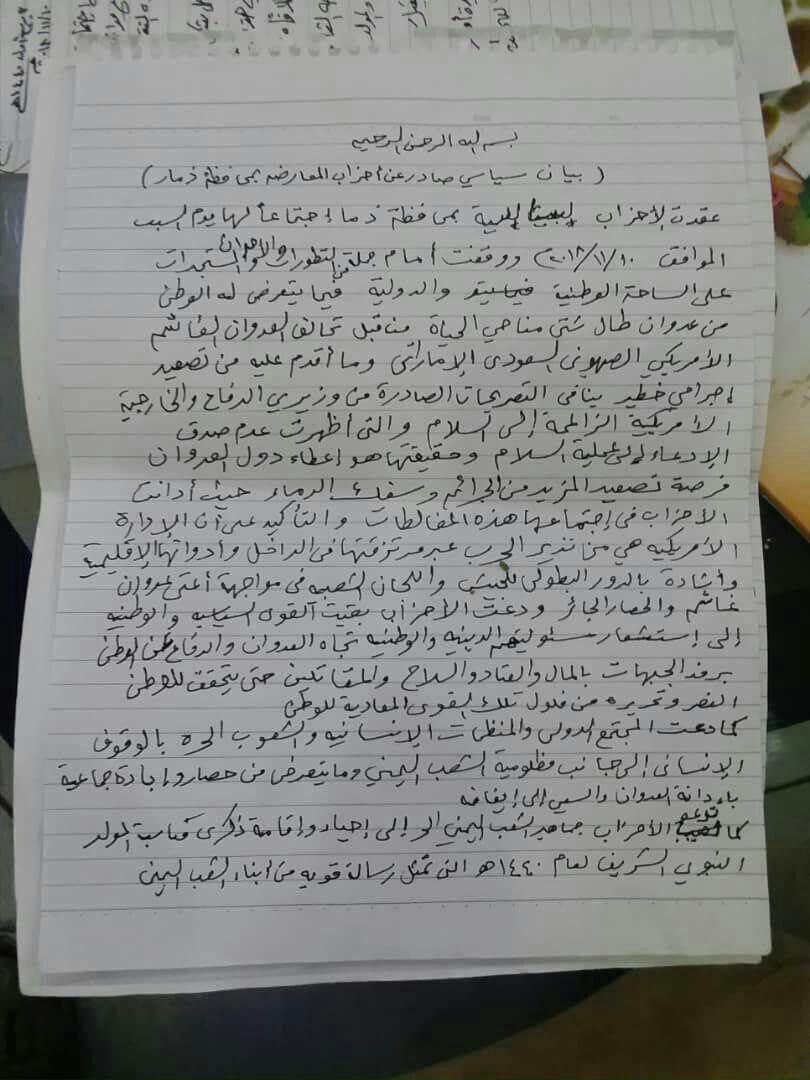 بسم الله الرحمن الرحيم
( بيان سياسي صادر عن أحزاب المعارضه بمحافظة ذمار )
عقدت الأحزاب السياسية بمحافظة ذمار إجتماعاً لها يوم السبت
الموافق ١٠/١١/٢٠١٨ ووقفت أمام جملة من التطورات والأحداث والمستجدات
على الساحة الوطنية والدولية فيما يتعرض له الوطن
من عدوان طال شتى مناحي الحياة من قبل تحالف العدوان الغاشم
الأمريكي الصهيوني السعودي الإماراتي وما أقدم عليه من تصعيد
إجرامي خطير ينافي التصريحات الصادرة من وزيري الدفاع والخارجية
الأمريكية الزاعمة إلى السلام والتي أظهرت عدم صدق
الإدعاء لعملية السلام وحقيقتها هو إعطاء دول العدوان
فرصة تصعيد المزيد من الجرائم وسفك الدماء حيث أدانت
الأحزاب في إجتماعها هذه المغالطات والتأكيد على أن الإدارة
الأمريكيه هي من تدير الحرب عبر مرتزقتها في الداخل وأدواتها الإقليمية
وأشادة بالدور البطولي للجيش واللجان الشعبيه في مواجهة أعتى عدوان
غاشم والحصار الجائر ودعت الأحزاب بقيت القوى السياسيه والوطنيه
إلى إستشعار مسئوليتهم الدينيه والوطنيه تجاه العدوان والدفاع عن الوطن
برفد الجبهات بالمال والعتاد والسلاح والمقاتلين حتى يتحقق للوطن
النصر وتحريره من فلول تلك القوى المعادية للوطن
كما دعت المجتمع الدولي والمنظمات الإنسانيه والشعوب الحره بالوقوف
الإنساني إلى جانب مظلومية الشعب اليمني وما يتعرض من حصار وإبادة جماعية
بإدانة العدوان والسعي إلى إيقافه
كما تدعو الأحزاب جماهير الشعب اليمني الى إحياء وإقامة ذكرى مناسبة المولد
النبوي الشريف لعام ١٤٤٠هـ التي تمثل رسالة قويه من أبناء الشعب اليمني